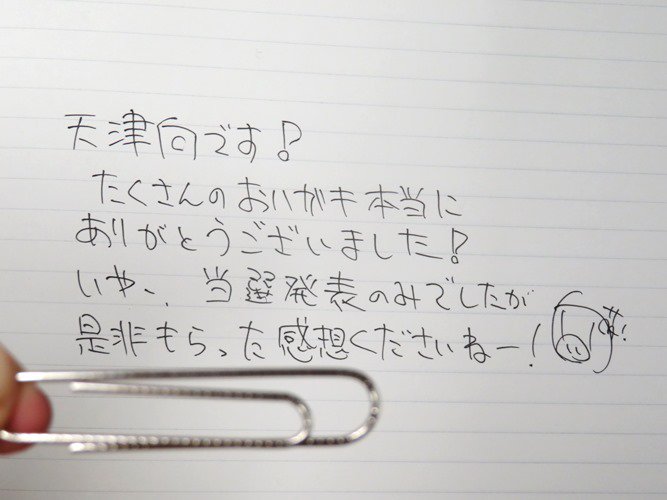 天津向です!
たくさんのおハガキ本当に
ありがとうございました!
いや、当選発表のみでしたが
是非もらった感想くださいねー!